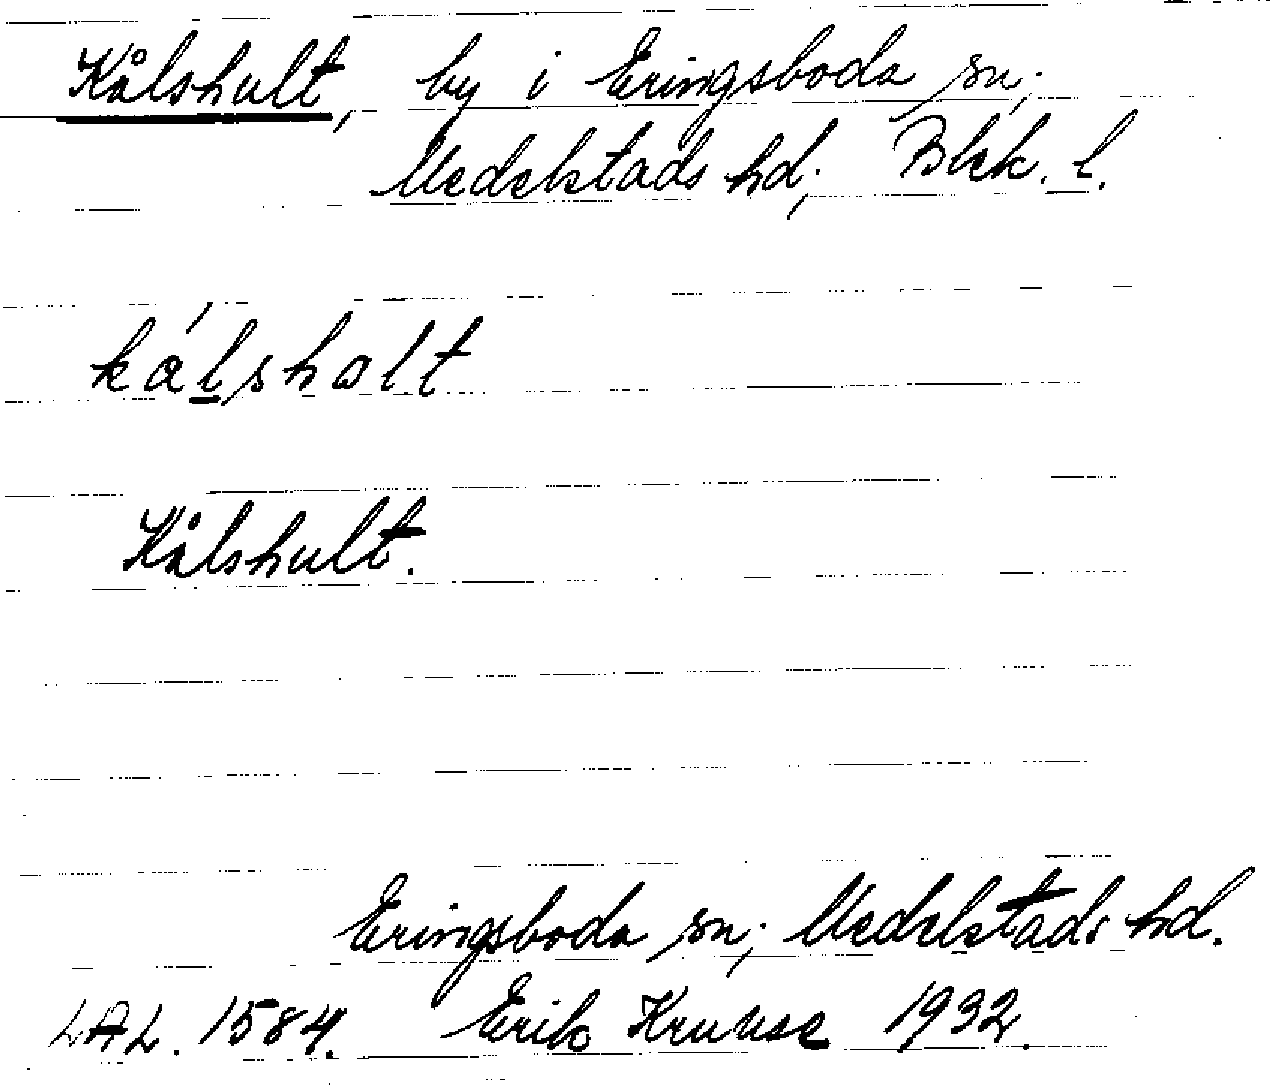 Kålshult, by i Eringsboda sn,
Medelstads hd, Blek. l.
kálshalt
Kålshult.
Eringsboda sn; Medelstads hd.
LAL. 1584. Erik Kruuse 1932.